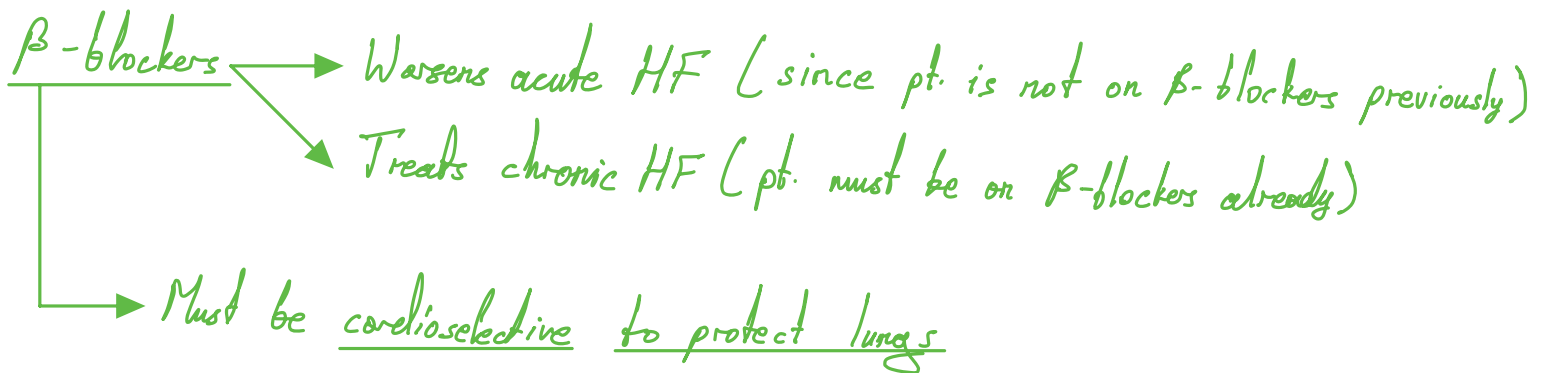 β-blockers
Worsens acute HF (since pt. is not on β-blockers previously)
Treats chronic HF (pt. must be on β-blockers already)
Must be cardioselective to protect lungs